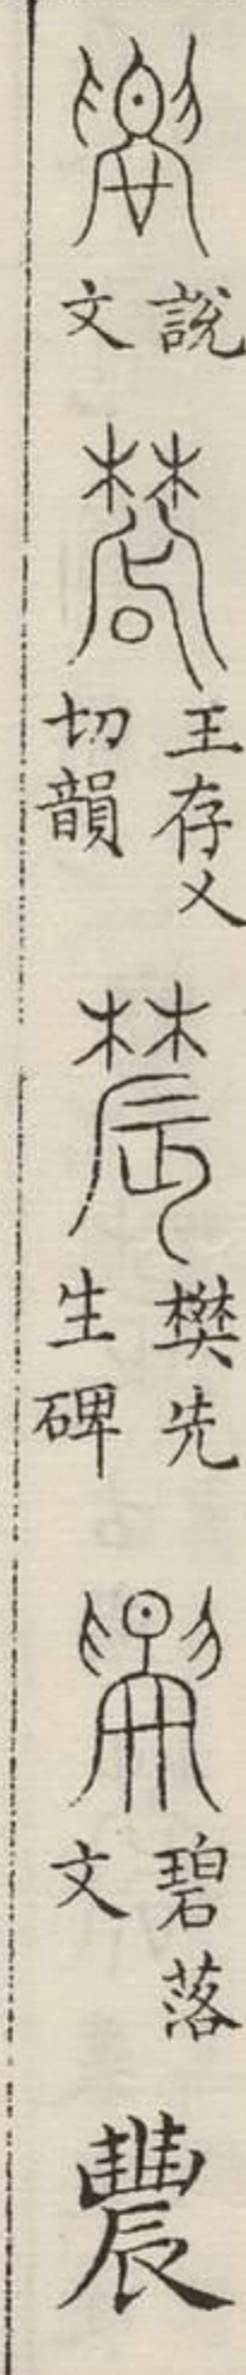 說文
王存乂切韻
樊先生碑
碧落文
農